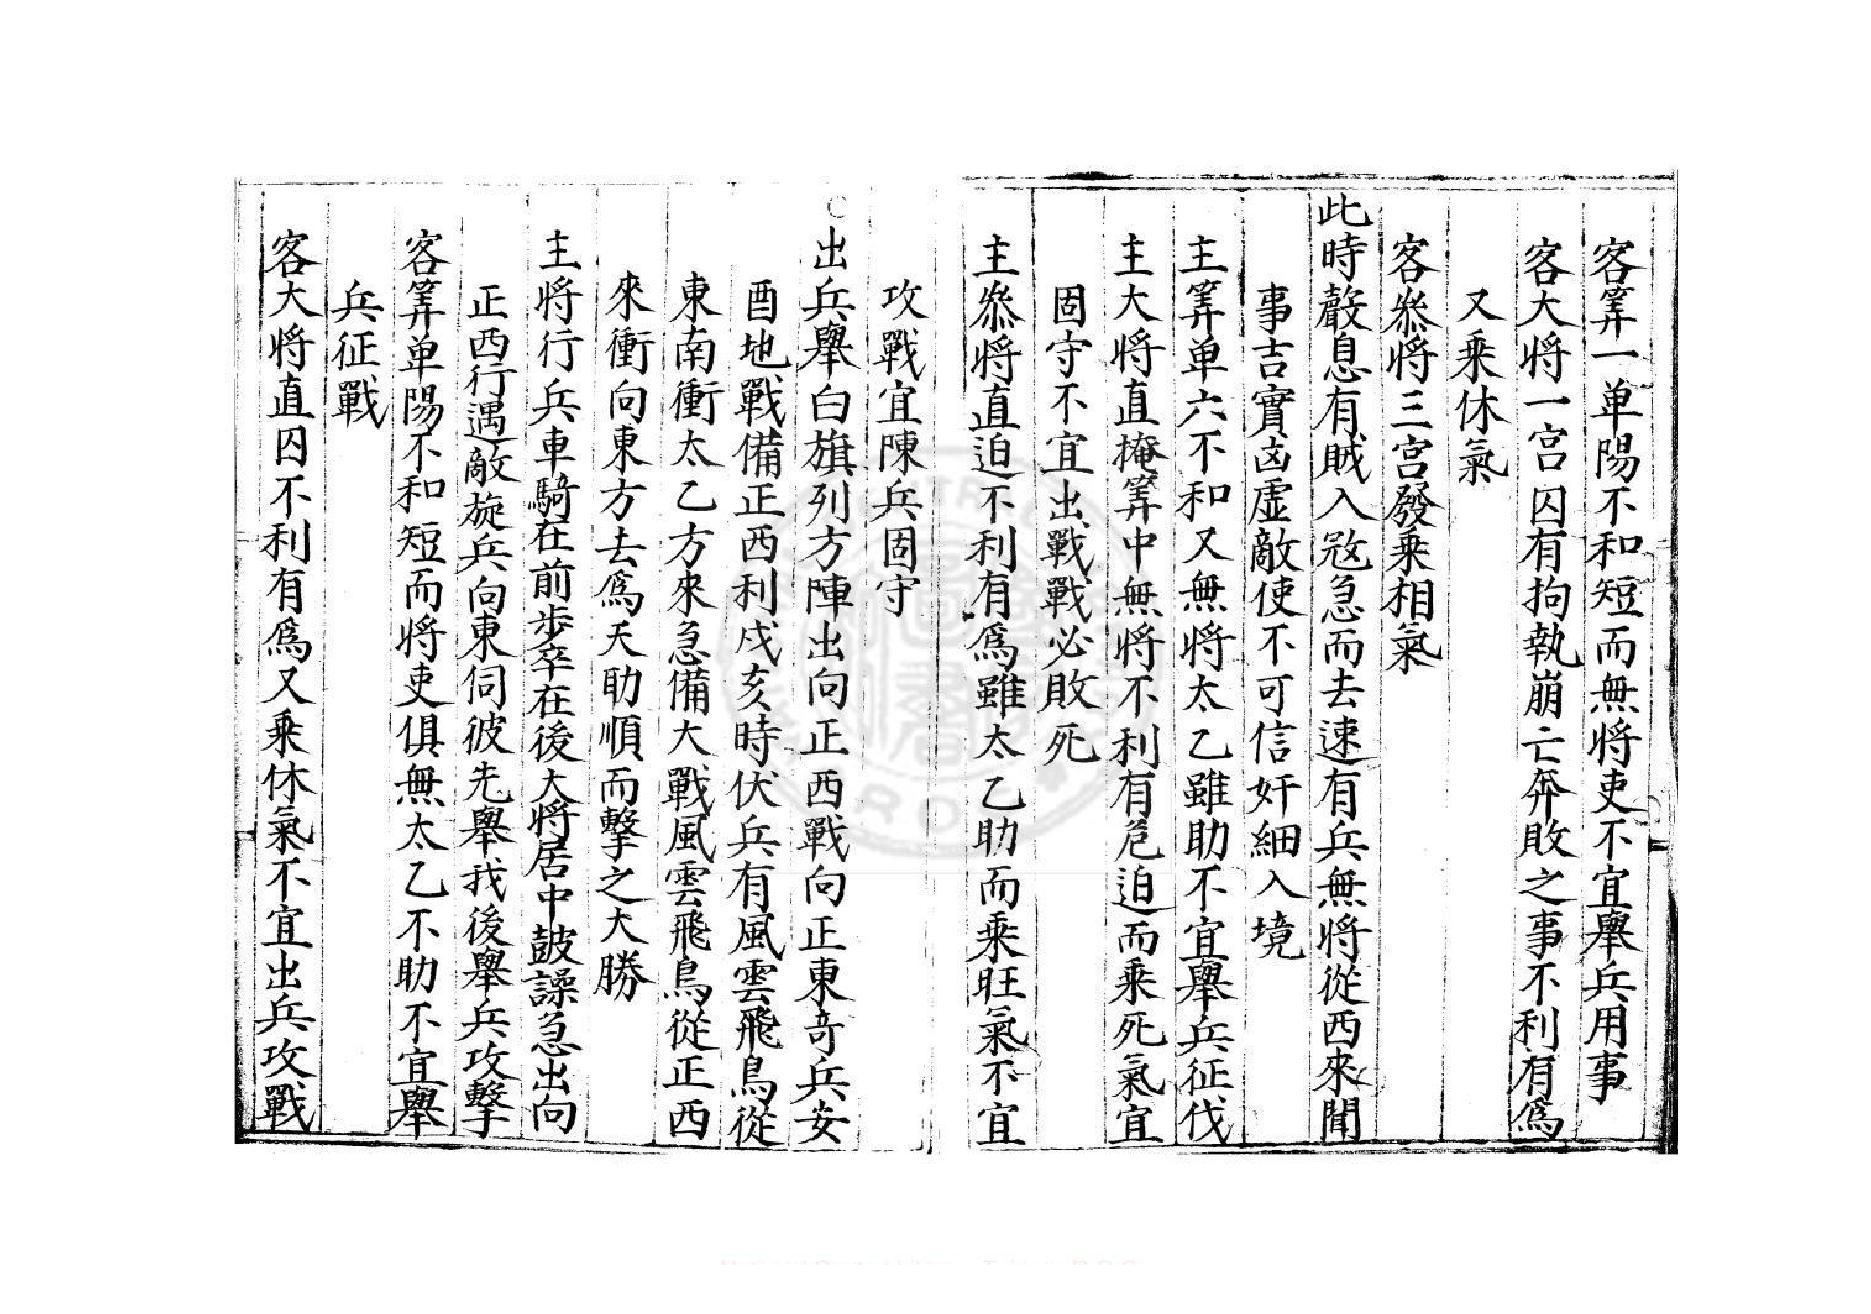 客筭一单陽不和短而無將吏不宜舉兵用事
客大將一宮囚有拘執崩亡奔敗之事不利有爲
又乘休氣
客叅將三宮發乘相氣
此時聲息有賊入㓂急而去速有兵無將從西來聞
事吉實凶虛敵使不可信奸細入境
主筭单六不和又無將太乙雖助不宜舉兵征伐
主大將直掩筭中無將不利有危迫而乘死氣宜
固守不宜出戰戰必敗死
主叅將直迫不利有爲雖太乙助而乘旺氣不宜
攻戰宜陳兵固守
○出兵舉白旗列方陣出向正西戰向正東竒兵安
酉地戰備正西利戍亥時伏兵有風雲飛鳥從
東南衝太乙方來急備大戰風雲飛鳥從正西
來衝向東方去爲天助順而擊之大勝
主將行兵車騎在前步卒在後大將居中鼓譟急出向
正西行遇敵旋兵向東伺彼先舉我後舉兵攻擊
客筭单陽不和短而將吏俱無太乙不助不宜舉
兵征戰
客大將直囚不利有爲又乘休氣不宜出兵攻戰